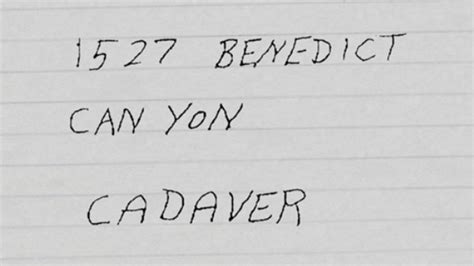 1527 BENEDICT
CAN YON
CADAVER